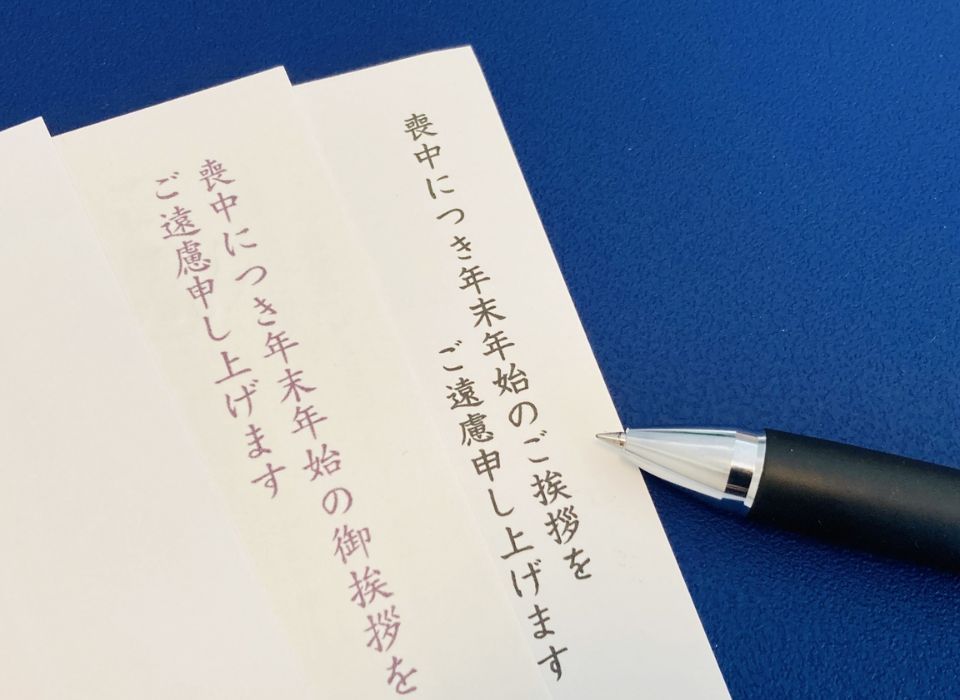 喪中につき年末年始のご挨拶を
ご遠慮申し上げます
喪中につき年末年始の御挨拶を
ご遠慮申し上げます